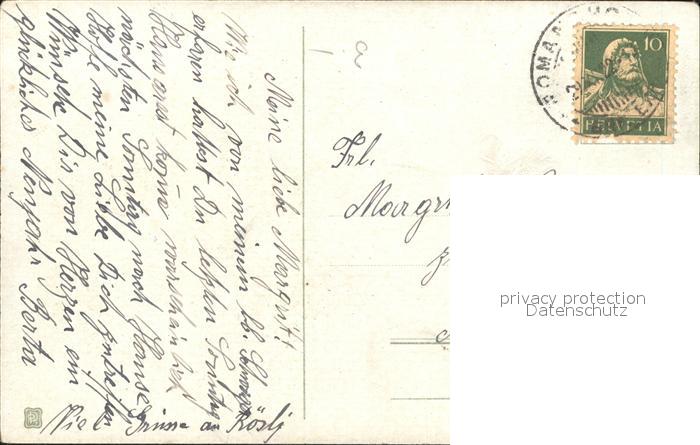 Meine liebe Margrit!
Wie ich von meinem lb. Schwager
erfaren hattest Du letzten Sonntag
Hausarest kome warscheinlich
nächsten Sonntag nach Hause
hübe meine Liebe Dich zu treffen
Wünsche Dis von Herzen ein
glückliches Neujahr Berta
Viel Grüsse an Rösly
a
Frl.
Margr
ROMANSHO
10
HELVETIA
privacy protection
Datenschutz